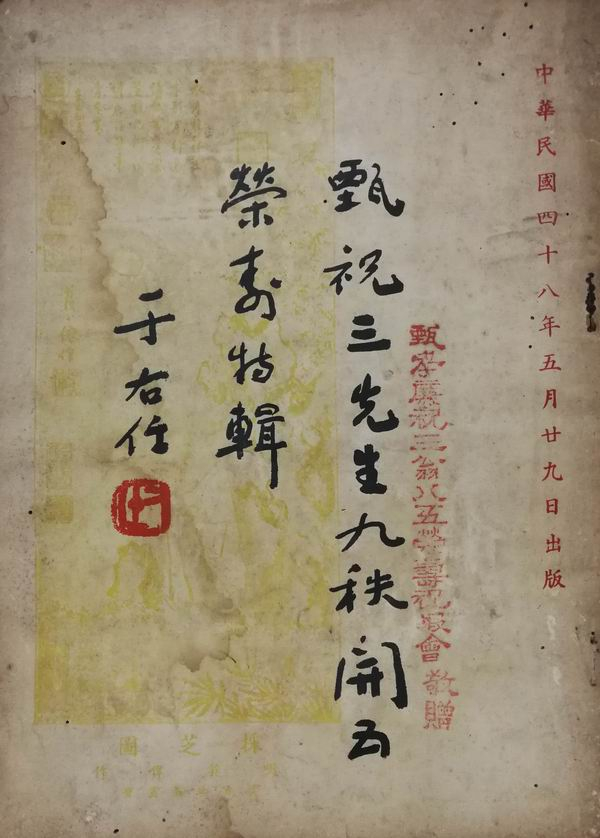 中華民國四十八年五月廿九日出版
甄孝廉祝三翁八五榮壽祝嘏會 敬贈
甄祝三先生九秩開五
榮壽特輯
于右任
採芝圖